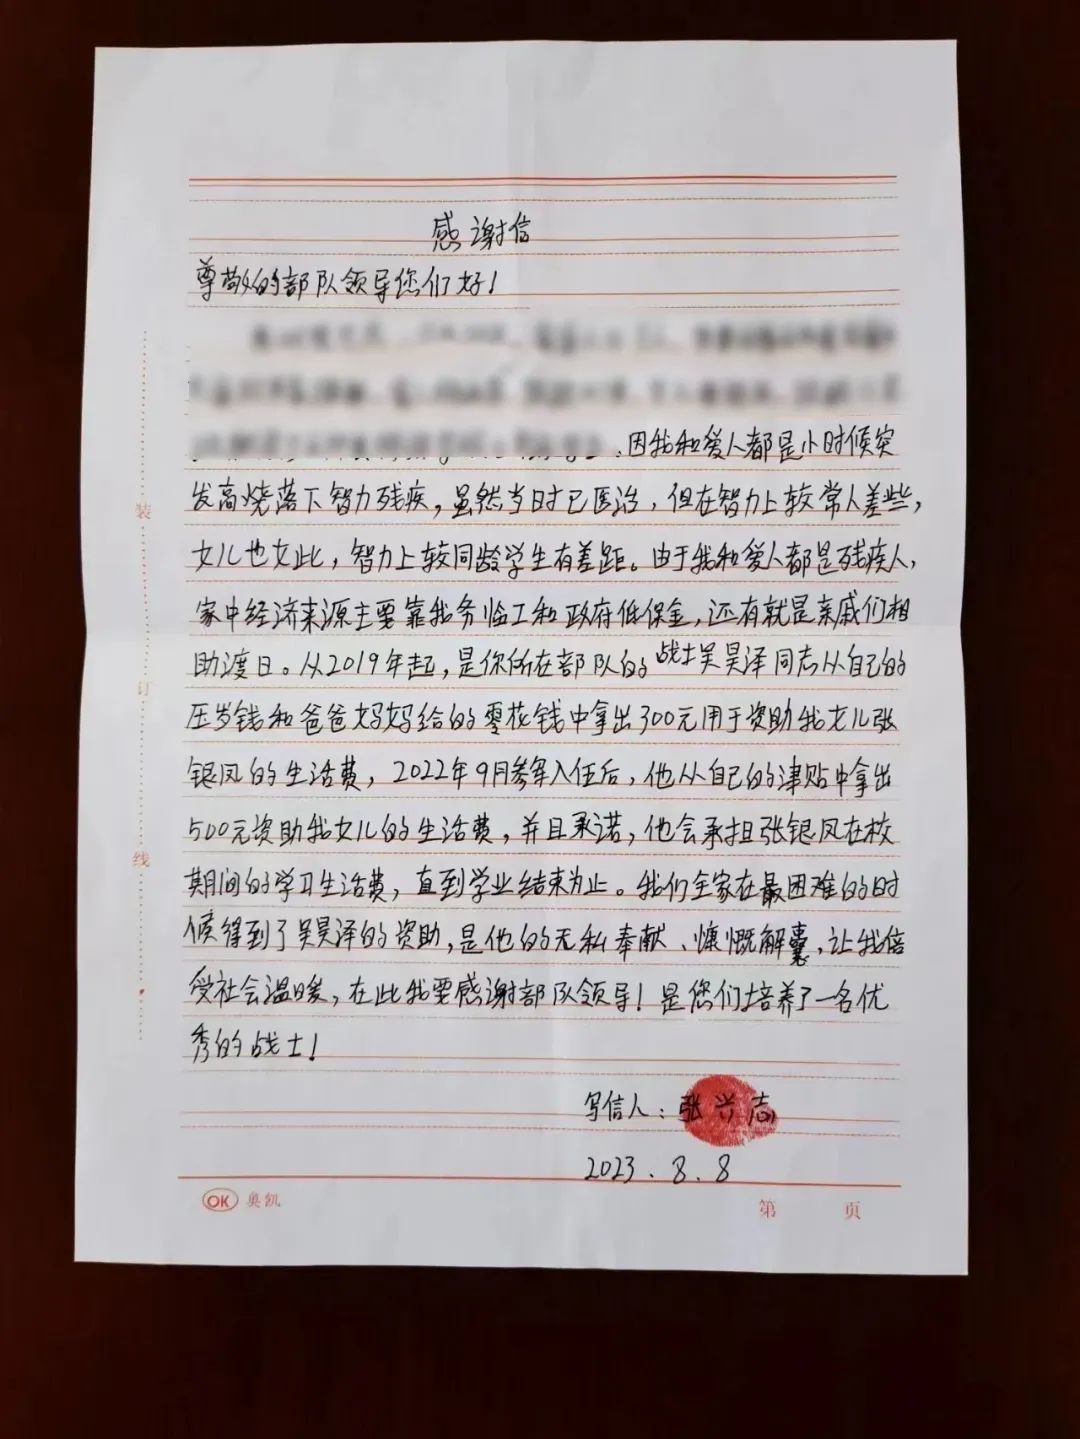 感谢信
尊敬的部队领导您们好！
因我和爱人都是小时候突
发高烧落下智力残疾，虽然当时已医治，但在智力上较常人差些，
女儿也如此，智力上较同龄学生有差距。由于我和爱人都是残疾人，
家中经济来源主要靠我务临工和政府低保金，还有就是亲戚们相
助渡日。从2019年起，是你所在部队的战士吴昊泽同志从自己的
压岁钱和爸爸妈妈给的零花钱中拿出300元用于资助我女儿张
银凤的生活费，2022年9月参军入伍后，他从自己的津贴中拿出
500元资助我女儿的生活费，并且承诺，他会承担张银凤在校
期间的学习生活费，直到学业结束为止。我们全家在最困难的时
候得到了吴昊泽的资助，是他的无私奉献、慷慨解囊，让我倍
受社会温暖，在此我要感谢部队领导！是您们培养了一名优
秀的战士！
写信人：张兴志
2023.8.8
装
订
线
OK 奥凯
第 页